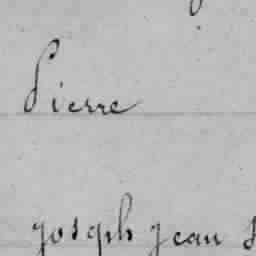 Pierre
Joseph Jean